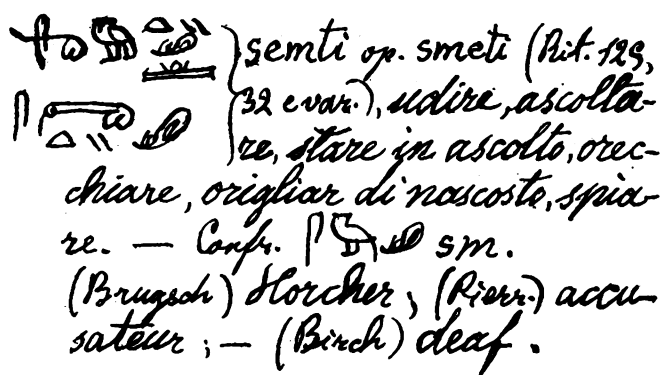 semti op. smeti (Rit. 125,
32 e var.), udire, ascolta-
re, stare in ascolto, orec-
chiare, origliar di nascosto, spia-
re. — Confr. sm.
(Brugsch) Horcher; (Pierr.) accu-
sateur; — (Birch) deaf.